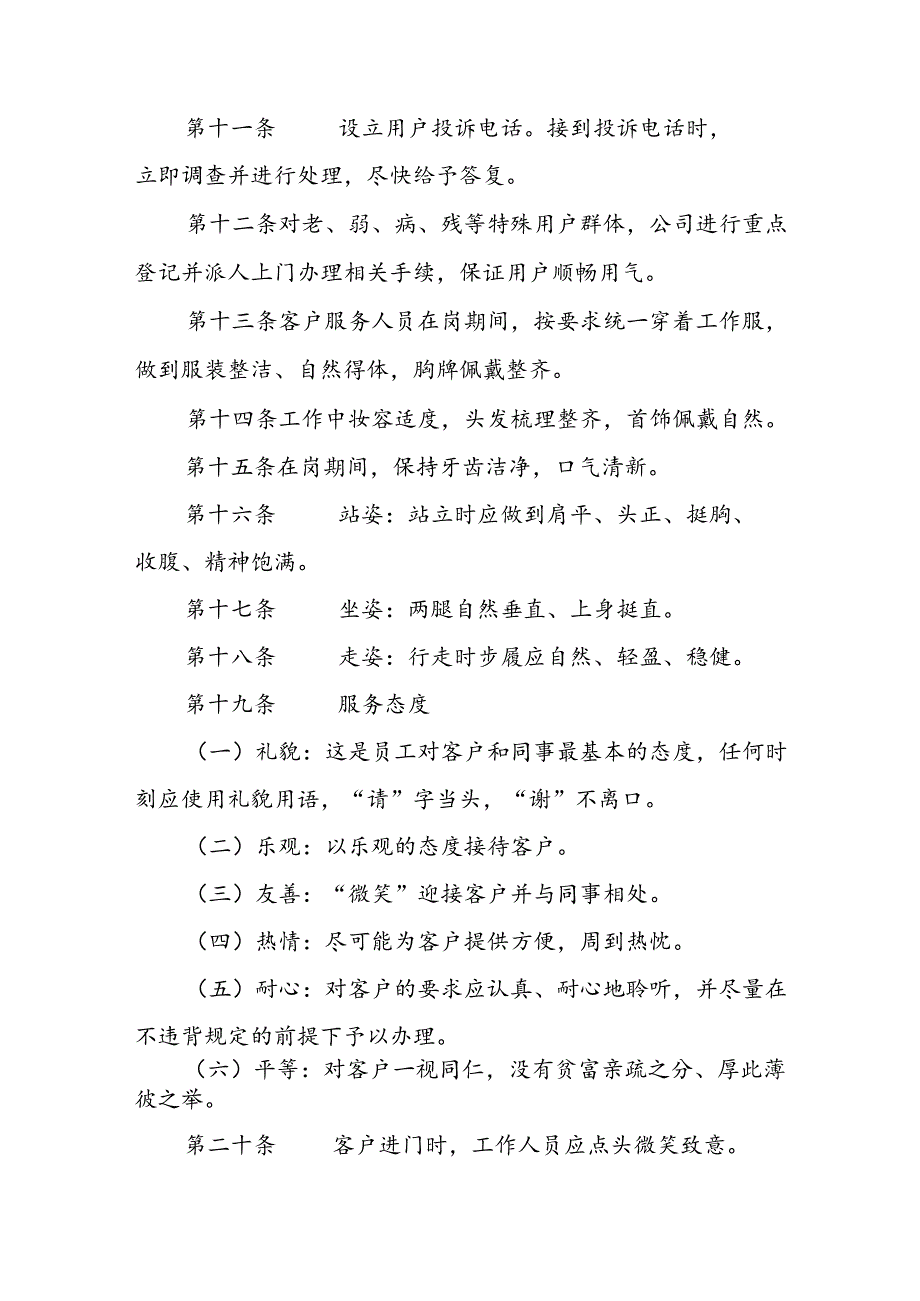 第十一条　　设立用户投诉电话。接到投诉电话时，
立即调查并进行处理，尽快给予答复。
第十二条对老、弱、病、残等特殊用户群体，公司进行重点
登记并派人上门办理相关手续，保证用户顺畅用气。
第十三条客户服务人员在岗期间，按要求统一穿着工作服，
做到服装整洁、自然得体，胸牌佩戴整齐。
第十四条工作中妆容适度，头发梳理整齐，首饰佩戴自然。
第十五条在岗期间，保持牙齿洁净，口气清新。
第十六条　　站姿：站立时应做到肩平、头正、挺胸、
收腹、精神饱满。
第十七条　　坐姿：两腿自然垂直、上身挺直。
第十八条　　走姿：行走时步履应自然、轻盈、稳健。
第十九条　　服务态度
（一）礼貌：这是员工对客户和同事最基本的态度，任何时
刻应使用礼貌用语，“请”字当头，“谢”不离口。
（二）乐观：以乐观的态度接待客户。
（三）友善：“微笑”迎接客户并与同事相处。
（四）热情：尽可能为客户提供方便，周到热忱。
（五）耐心：对客户的要求应认真、耐心地聆听，并尽量在
不违背规定的前提下予以办理。
（六）平等：对客户一视同仁，没有贫富亲疏之分、厚此薄
彼之举。
第二十条　　客户进门时，工作人员应点头微笑致意。